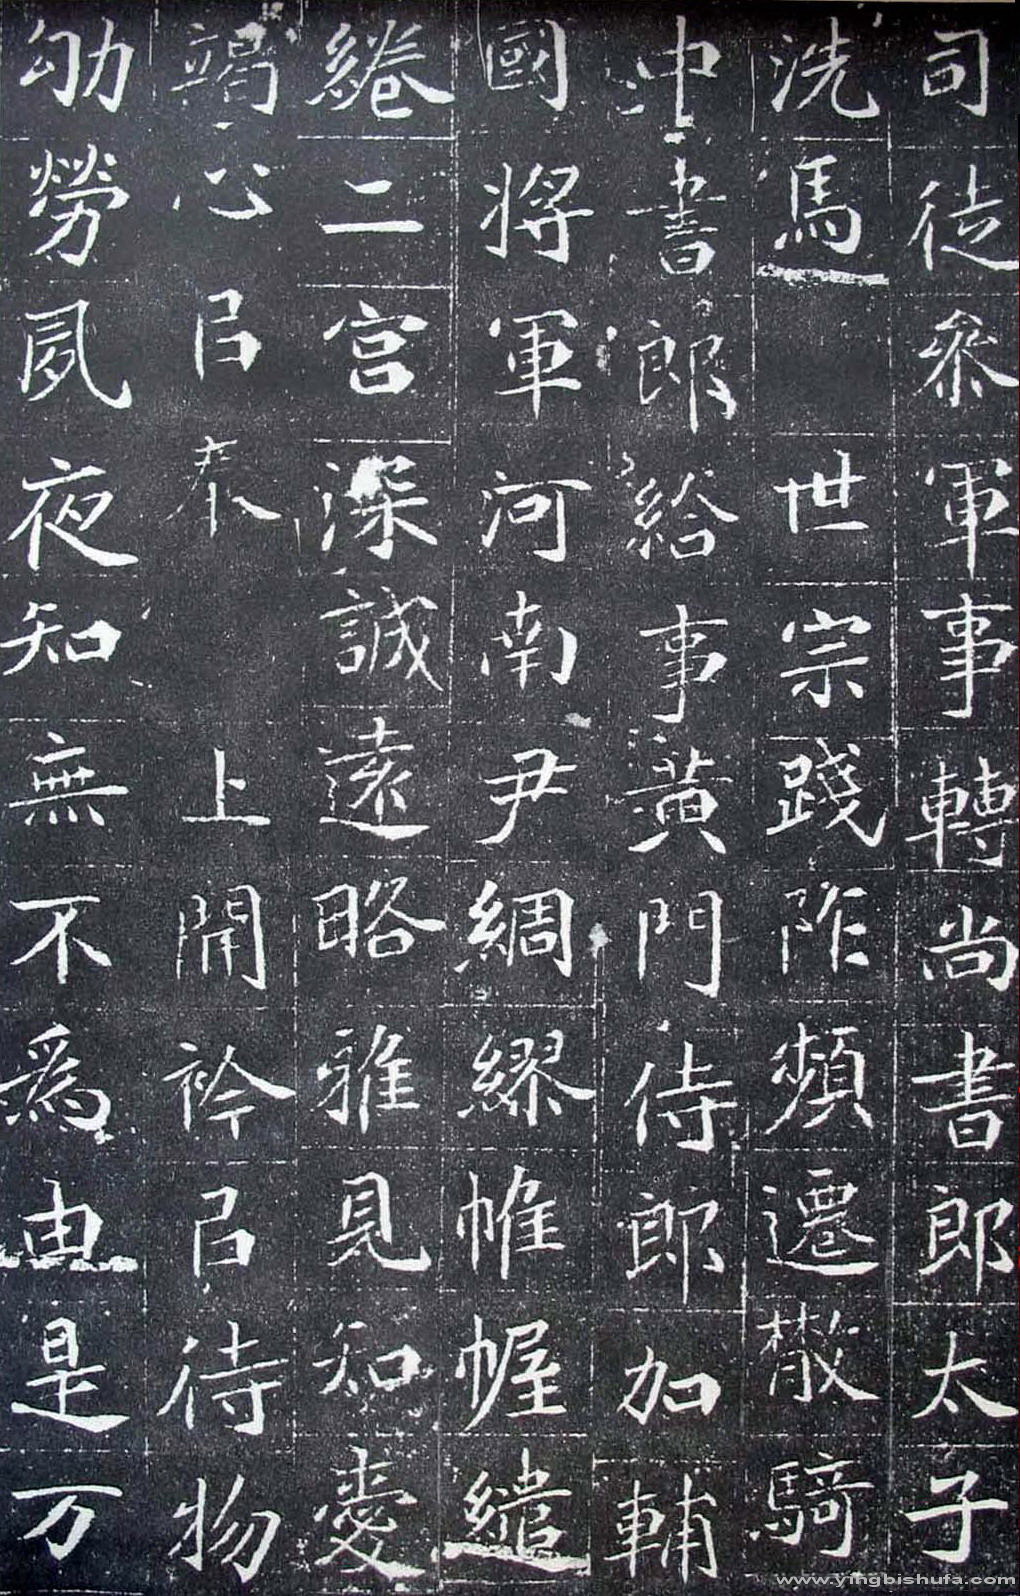 司徒叅軍事轉尚書郎太子
洗馬 世宗踐阼頻遷散騎
中書郎給事黃門侍郎加輔
國將軍河南尹綢繆帷幄繾
綣二宮深誠遠略雅見知愛
竭心㠯奉 上開衿㠯待物
劬勞夙夜知無不爲由是万
www.yingbishufa.com